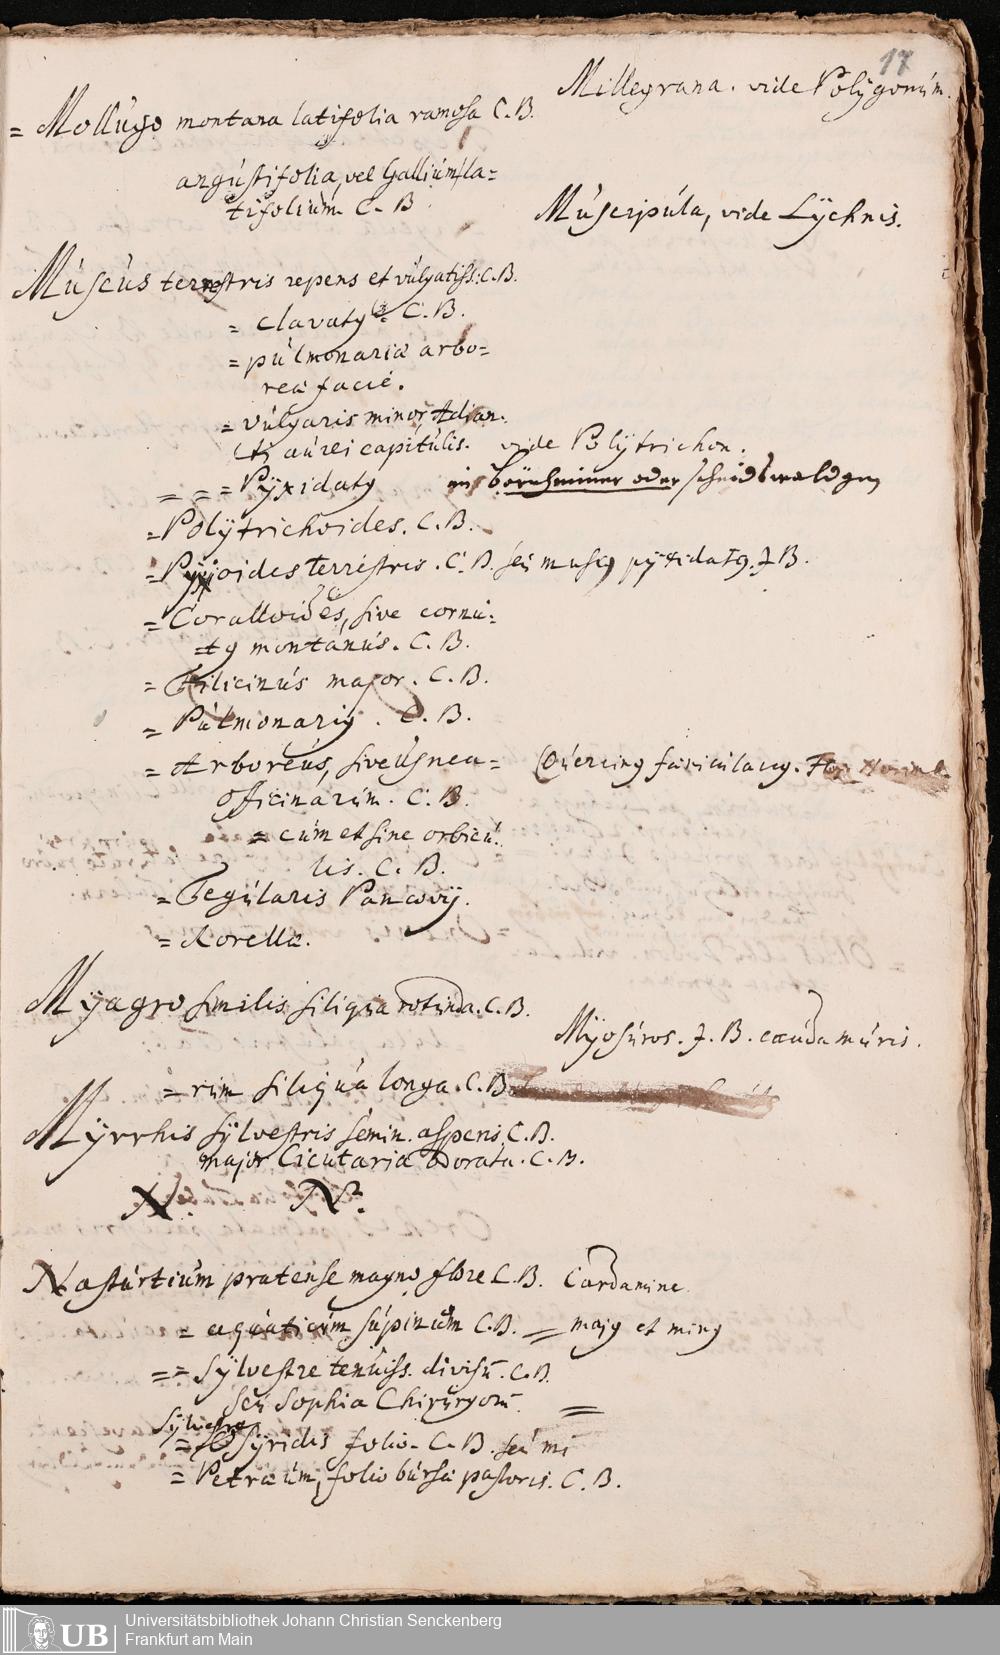 17
Millegrana. vide Polÿgonúm.
= Mollúgo montana latifolia ramosa C.B.
angústifolia, vel Galliúm la=
tifoliúm C.B
Múscipúla, vide Lÿchnis.
Múscús terrestris repens et vúlgatiss: C.B.
= clavatq C.B.
= púlmonariæ arbo=
reæ facie.
= vúlgaris minor, Adian-
ti aúrei capitúlis. vide Polÿtrichon.
= = = Pÿxidatq
= Polÿtrichoides. C.B.
= Pyxioides terrestris. C.B. seú muscq pyxidatq. J B.
= Coralloides, sive cornú=
=tq montánús. C.B.
= Filicinús major. C.B.
= Púlmonariq. C.B.
= Arboreús, sive úsnea= Quercinq
officinarúm. C.B.
= cúm et sine orbicú:
lis. C.B.
= Tegúlaris Pancovij.
= Rorella.
Mÿagro similis siliqúa rotúnda. C.B.
Mÿosúros. J. B. caúda múris.
= rúm siliqúa longa. C.B.
Mÿrrhis sÿlvestris semin. asperis C.B.
major Cicutaria odorata. C.B.
N. N.
Nastúrtiúm pratense magno flore C.B. Cardamine.
= aqúaticúm súpinúm C.B. = majq et minq
= = Sÿlvestre tenúiss. divisú. C.B.
seú Sophia Chirúrgorú. =
Sÿlvestre
= Osÿridis folio. C.B. seú mi
= Petræúm, folio búrsæ pastoris. C.B.
UB Universitätsbibliothek Johann Christian Senckenberg
Frankfurt am Main